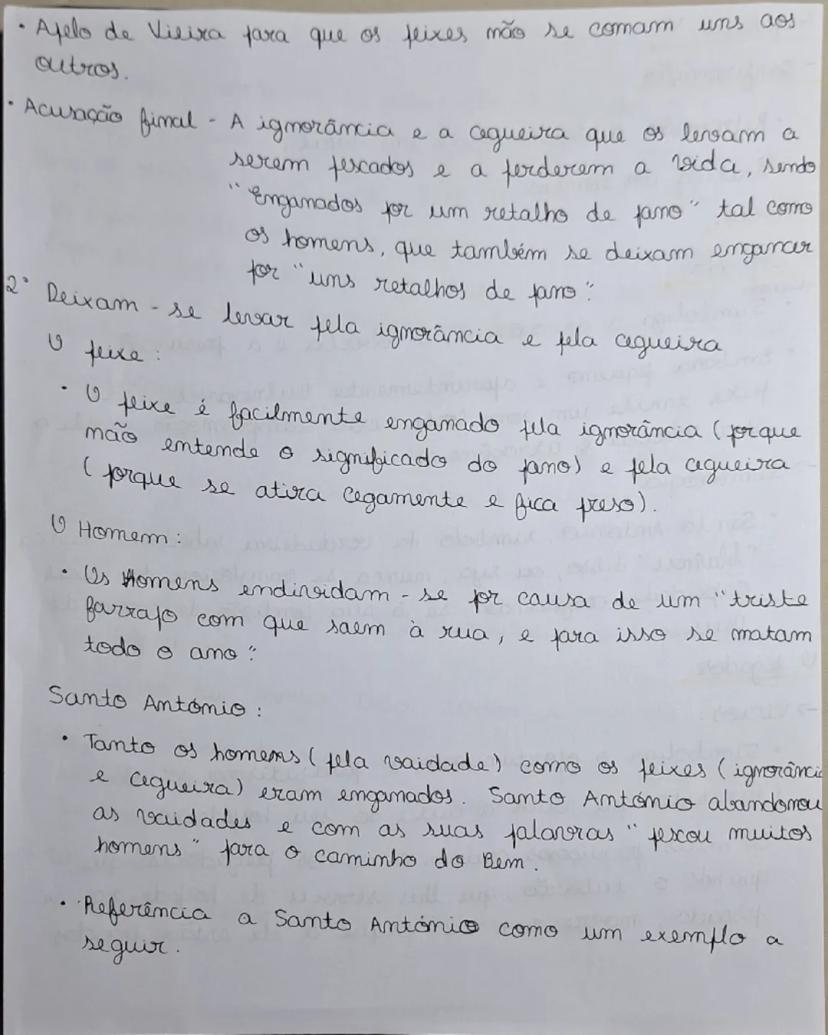 • Apelo de Vieira para que os peixes não se comam uns aos
outros.
• Acusação final - A ignorância e a cegueira que os levam a
serem pescados e a perderem a vida, sendo
"enganados por um retalho de pano" tal como
os homens, que também se deixam enganar
por "uns retalhos de pano".
2° Deixam-se levar pela ignorância e pela cegueira
O peixe:
• O peixe é facilmente enganado pela ignorância (porque
não entende o significado do pano) e pela cegueira
(porque se atira cegamente e fica preso).
O Homem:
• Os Homens endividam-se por causa de um "triste
farrapo com que saem à rua, e para isso se matam
todo o ano".
Santo António:
• Tanto os homens (pela vaidade) como os peixes (ignorânci
e cegueira) eram enganados. Santo António abandonou
as vaidades e com as suas palavras "pescou muitos
homens" para o caminho do Bem.
• Referência a Santo António como um exemplo a
seguir.